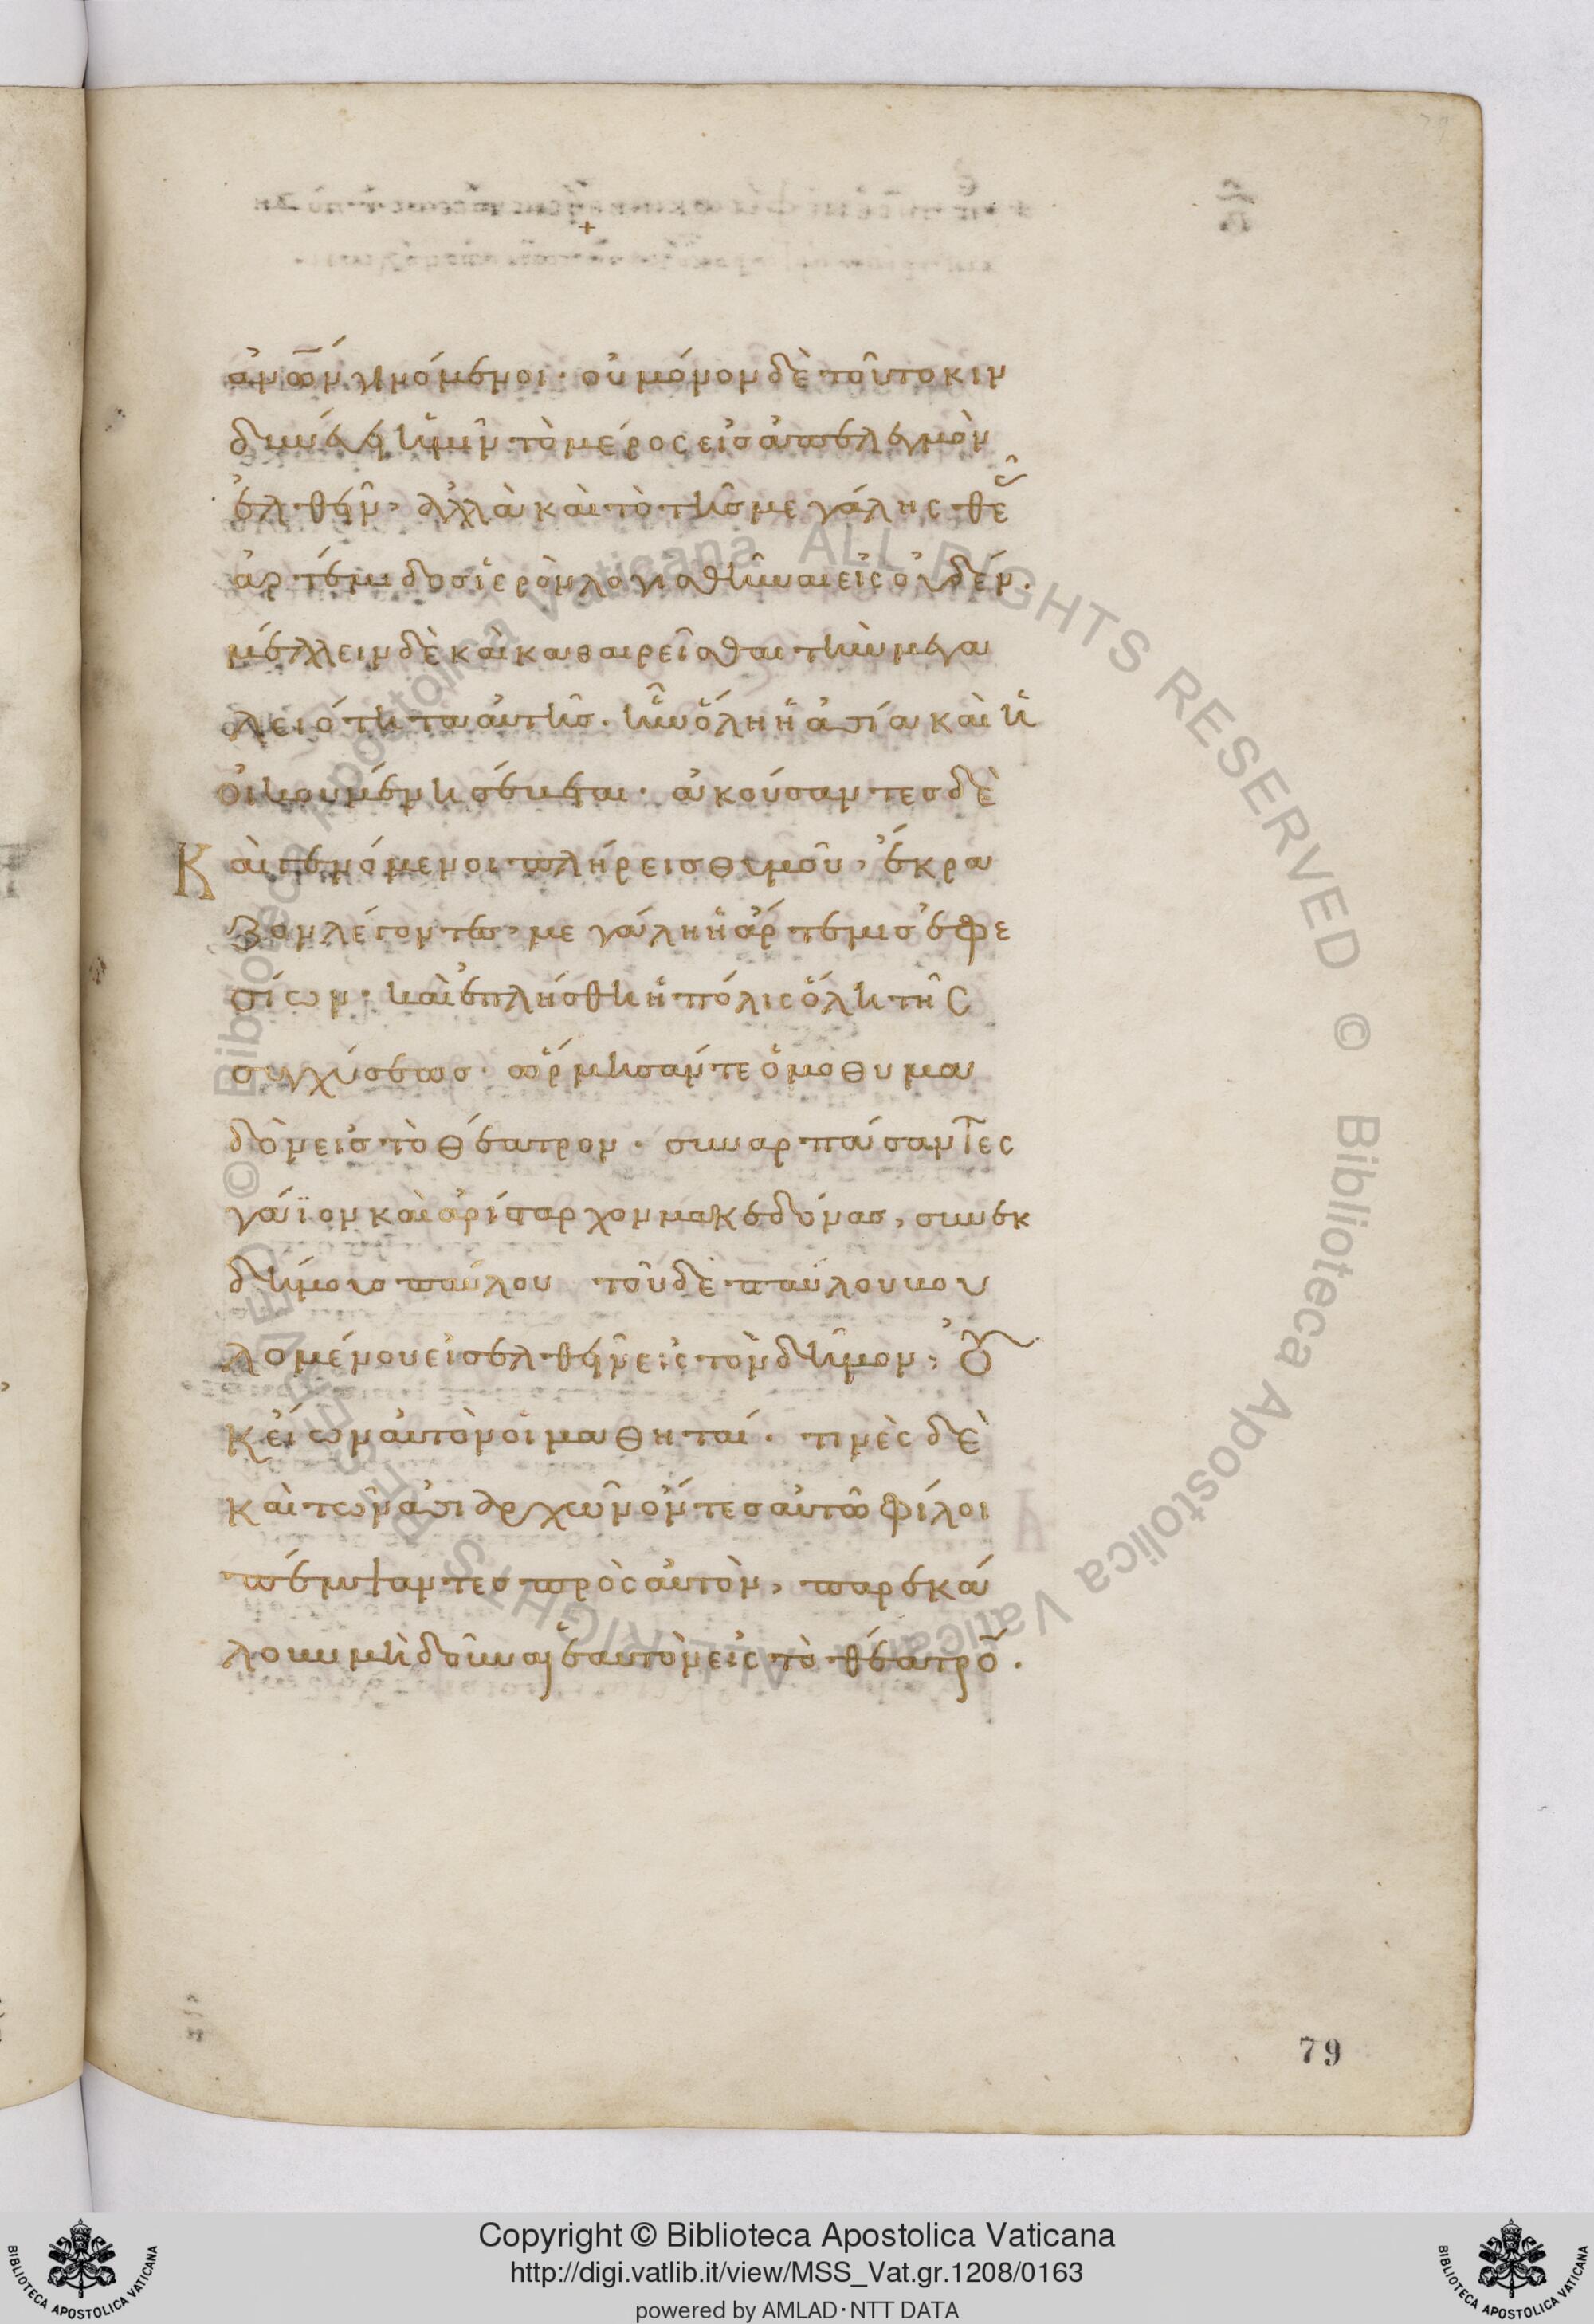 ἀνῶν γινόμενοι· οὐ μόνον δὲ τοῦτο κιν
δυνεύει ἡμῖν τὸ μέρος εἰς ἀπελεγμὸν
ἐλθεῖν, ἀλλὰ καὶ τὸ τῆς μεγάλης θε
ἀρτέμιδος ἱερὸν λογισθῆναι εἰς οὐδέν.
μέλλειν δὲ καὶ καθαιρεῖσθαι τὴν μεγα
λειότητα αὐτῆς· ἣν ὅλη ἡ ἀσία καὶ ἡ
οἰκουμένη σέβεται· ἀκούσαντες δὲ
Καὶ γενόμενοι πλήρεις θυμοῦ, ἔκρα
ζον λέγοντες, μεγάλη ἡ ἄρτεμις ἐφε
σίων· καὶ ἐπλήσθη ἡ πόλις ὅλη τῆς
συγχύσεως· ὥρμησάν τε ὁμοθυμα
δὸν εἰς τὸ θέατρον· συναρπάσαντες
γάϊον καὶ ἀρίσταρχον μακεδόνας, συνεκ
δήμους παύλου τοῦ δὲ παύλου βου
λομένου εἰσελθεῖν εἰς τὸν δῆμον, οὐκ
εἴων αὐτὸν οἱ μαθηταί· τινὲς δὲ
καὶ τῶν ἀσιαρχῶν ὄντες αὐτῶ φίλοι
πέμψαντες πρὸς αὐτὸν, παρεκά
λουν μὴ δοῦναι ἑαυτὸν εἰς τὸ θέατρο̄.
79
© Biblioteca Apostolica Vaticana ALL RIGHTS RESERVED © Biblioteca Apostolica Vaticana ALL RIGHTS RESERVED
Copyright © Biblioteca Apostolica Vaticana
http://digi.vatlib.it/view/MSS_Vat.gr.1208/0163
powered by AMLAD·NTT DATA
BIBLIOTECA APOSTOLICA VATICANA
BIBLIOTECA APOSTOLICA VATICANA